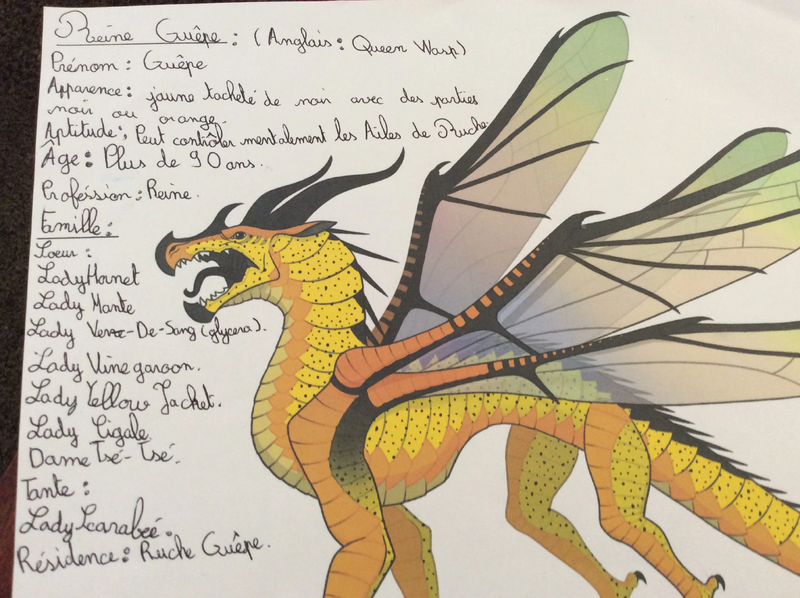 Reine Guêpe : (Anglais : Queen Wasp)
Prénom : Guêpe
Apparence : jaune tacheté de noir avec des parties
noir ou orange.
Aptitude : Peut contrôler mentalement les Ailes de Ruche.
Âge : Plus de 90 ans.
Proféssion : Reine.
Famille :
Soeur :
Lady Hornet
Lady Mante
Lady De-Sang (glycera).
Lady Vinegaroon.
Lady Yellow Jacket.
Lady Cigale
Dame Tsé-Tsé.
Tante :
Lady Scarabée.
Résidence : Ruche Guêpe.